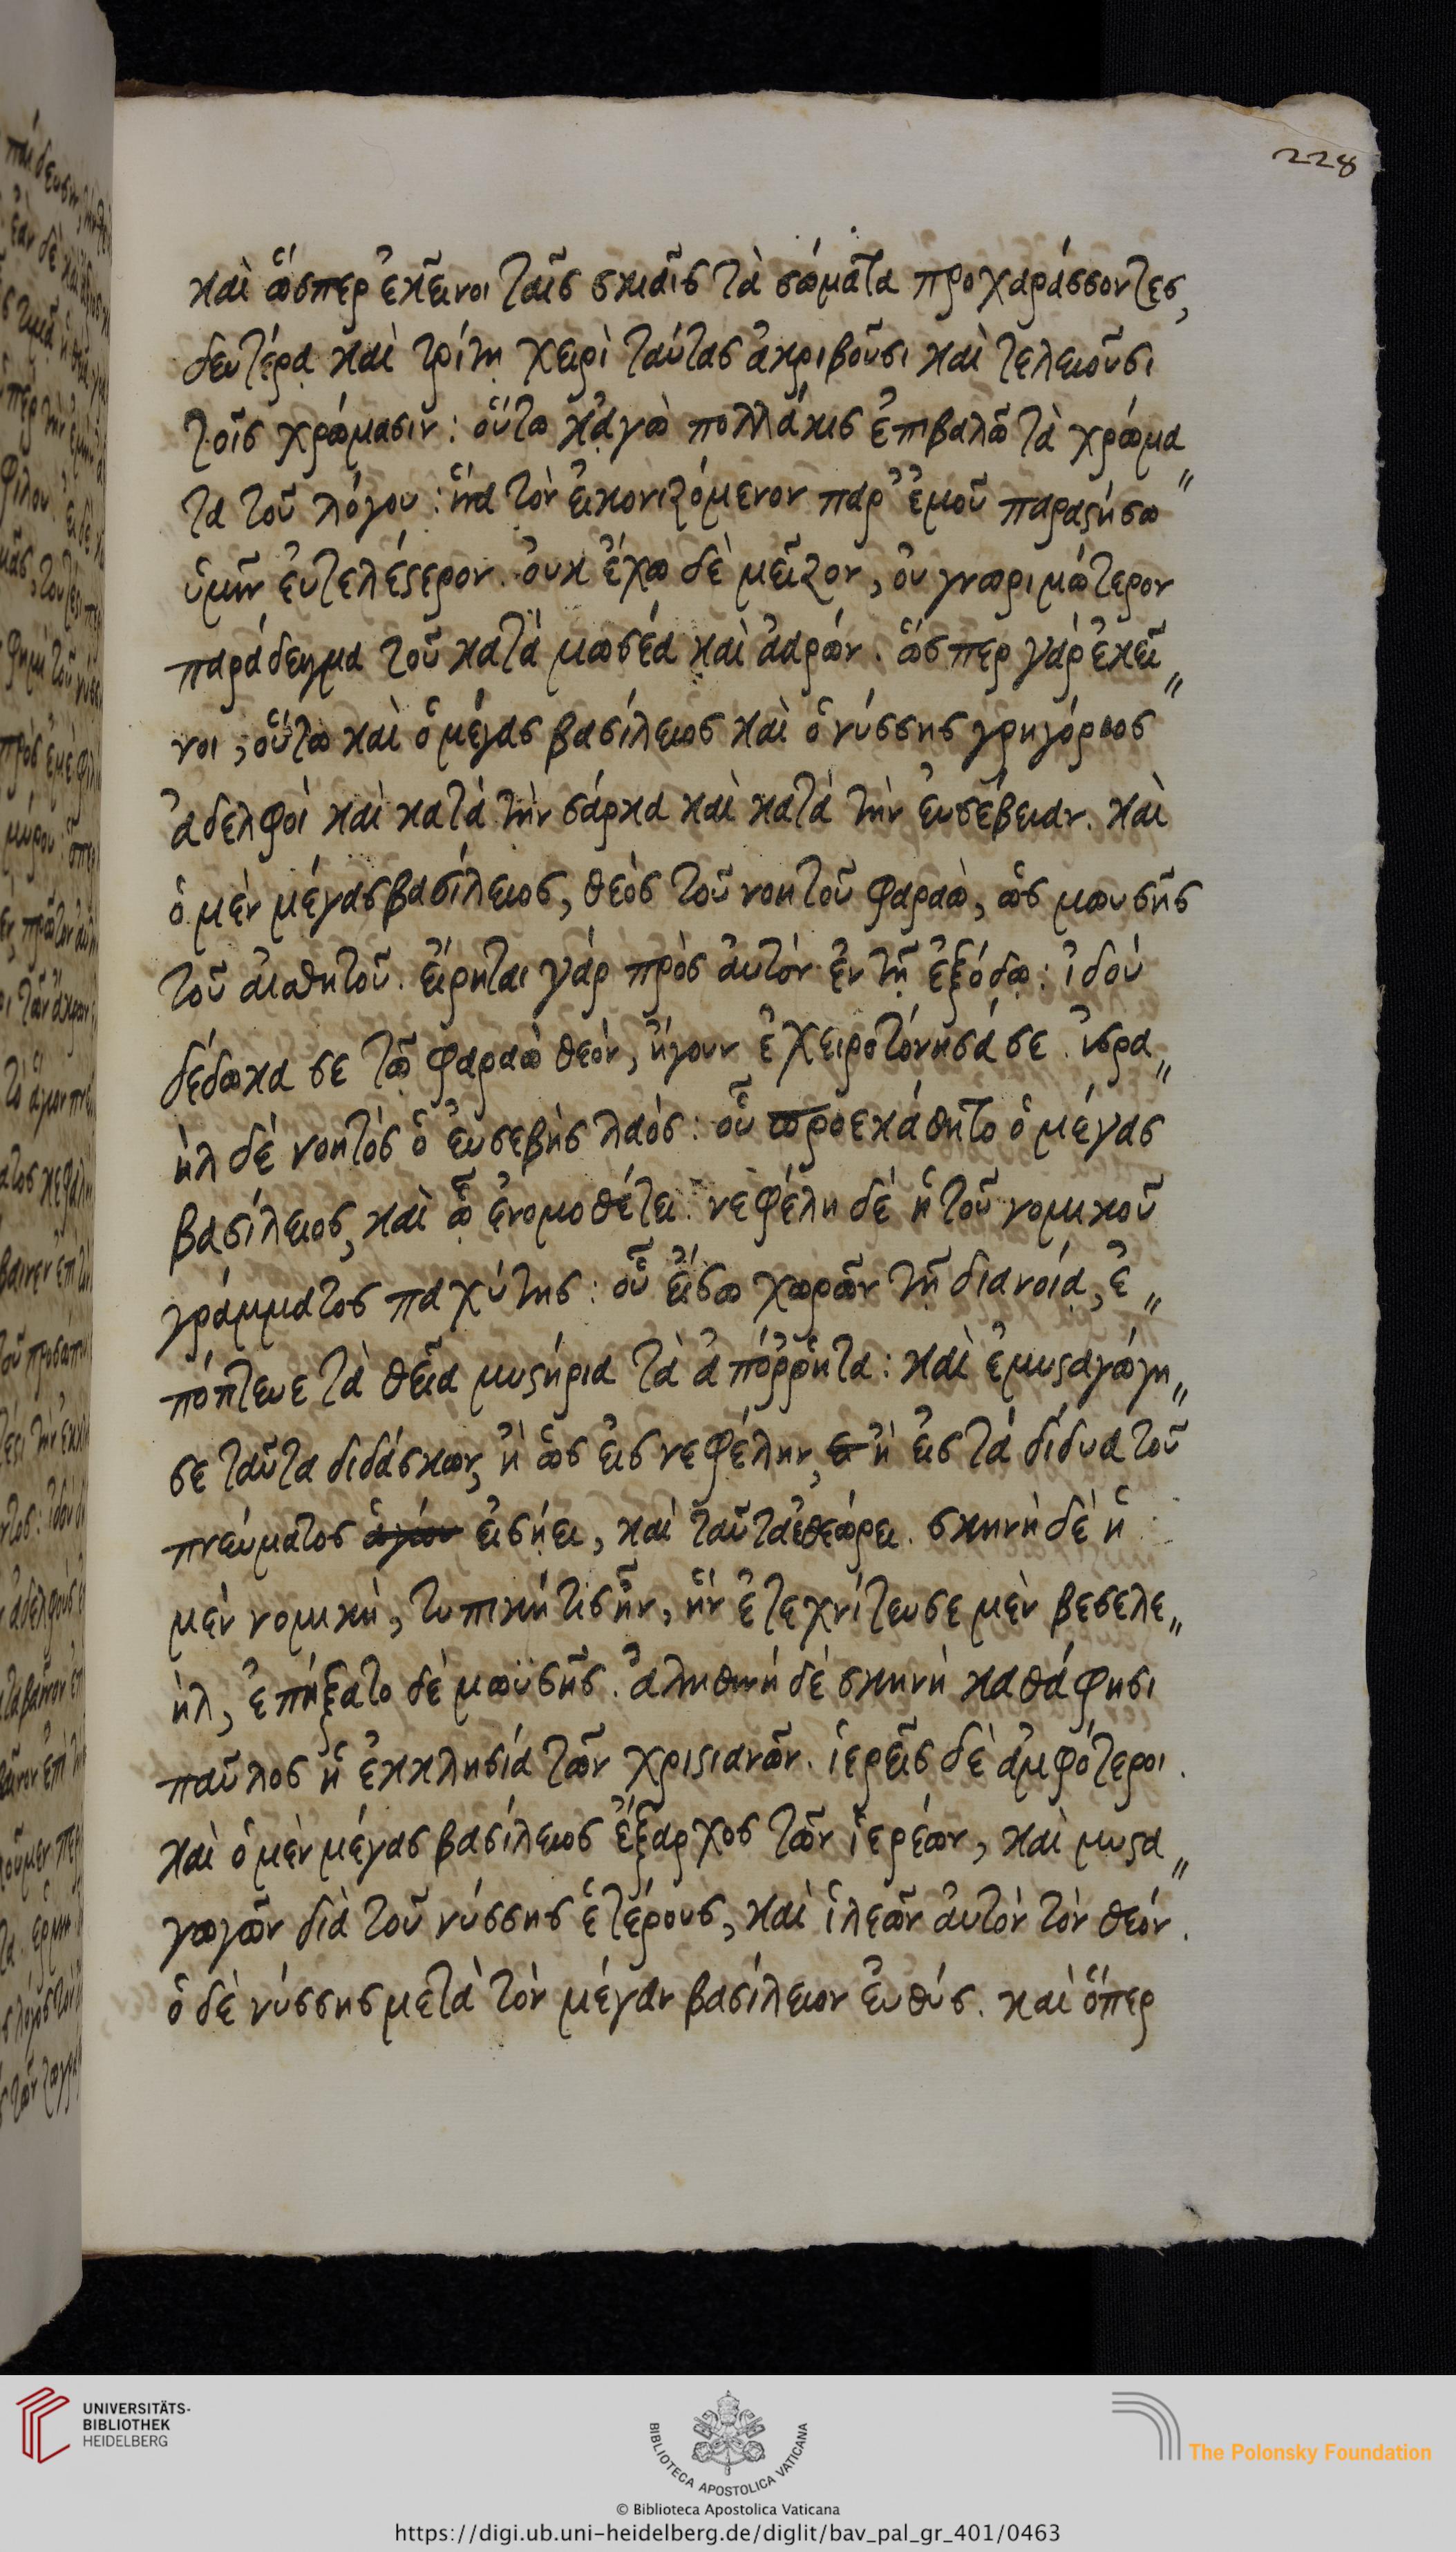 228
καὶ ὥσπερ ἐκεῖνοι ταῖς σκιαῖς τὰ σώματα προχαράσσοντες,
δευτέρᾳ καὶ τρίτῃ χειρὶ ταύτας ἀκριβοῦσι καὶ τελειοῦσι
τοῖς χρώμασιν: οὕτω κᾀγὼ πολλάκις ἐπιβαλῶ τὰ χρώμα
τα τοῦ λόγου: ἵνα τὸν εἰκονιζόμενον παρ' ἐμοῦ παραστήσω
ὑμῖν εὐτελέστερον. οὐκ ἔχω δὲ μεῖζον, οὐ γνωριμώτερον
παράδειγμα τοῦ κατὰ μωσέα καὶ ἀαρών. ὥσπερ γὰρ ἐκεῖ
νοι, οὕτω καὶ ὁ μέγας βασίλειος καὶ ὁ νύσσης γρηγόριος
ἀδελφοὶ καὶ κατὰ τὴν σάρκα καὶ κατὰ τὴν εὐσέβειαν. καὶ
ὁ μὲν μέγας βασίλειος, θεὸς τοῦ νοητοῦ φαραὼ, ὡς μωυσῆς
τοῦ αἰσθητοῦ. εἴρηται γὰρ πρὸς αὐτὸν ἐν τῇ ἐξόδῳ: ἰδοὺ
δέδωκα σε τῷ φαραὼ θεὸν, ἤγουν ἐχειροτόνησά σε. ἰσρα
ὴλ δὲ νοητὸς ὁ εὐσεβὴς λαός: οὗ προεκάθητο ὁ μέγας
βασίλειος, καὶ ᾧ ἐνομοθέτει: νεφέλη δὲ ἡ τοῦ νομικοῦ
γράμματος παχύτης: οὗ εἴσω χωρῶν τῇ διανοίᾳ, ἐ
πόπτευε τὰ θεῖα μυστήρια τὰ ἀπόῤῥητα: καὶ ἐμυσταγώγη
σε ταῦτα διδάσκων, ἢ ὡς εἰς νεφέλην, ἢ εἰς τὰ δίδυα τοῦ
πνεύματος ἁγίου εἰσῄει, καὶ ταῦτα ἐθεώρει. σκηνὴ δὲ ἡ
μὲν νομικὴ, τυπική τις ἦν, ἣν ἐτεχνίτευσε μὲν βεσελε
ὴλ, ἐπήξατο δὲ μωϋσῆς. ἀληθινὴ δὲ σκηνὴ καθά φησι
παῦλος ἡ ἐκκλησία τῶν χριστιανῶν. ἱερεῖς δὲ ἀμφότεροι.
καὶ ὁ μὲν μέγας βασίλειος ἔξαρχος τῶν ἱερέων, καὶ μυστα
γωγῶν διὰ τοῦ νύσσης ἑτέρους, καὶ ἱλεῶν αὐτὸν τὸν θεόν.
ὁ δὲ νύσσης μετὰ τὸν μέγαν βασίλειον εὐθύς. καὶ ὅπερ
UNIVERSITÄTS-
BIBLIOTHEK
HEIDELBERG
BIBLIOTECA APOSTOLICA VATICANA
The Polonsky Foundation
© Biblioteca Apostolica Vaticana
https://digi.ub.uni-heidelberg.de/diglit/bav_pal_gr_401/0463